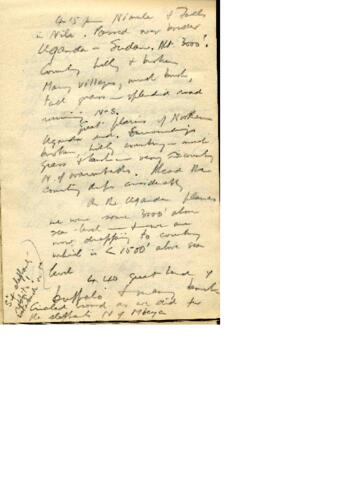 4.15 pm Nimule & Falls
in Nile. Passed over border
Uganda – Sudan. Alt 3000'.
Country hilly & broken
Many villages, much bush,
tall grass – splendid road
running N-S.
great plains of Northern
Uganda end. Surroundings
broken, hilly country – much
grass &
N. of
country drops considerably
On the Uganda plains
we were some 3000' above
sea-level – & now are
now dropping to country
which is < 1500' above sea
level
4.40 great herd of
buffalo & many
Circled round as we did for
the elephants N of Mbeya